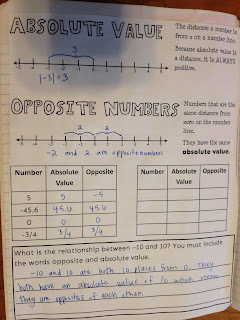 ABSOLUTE VALUE
The distance a number is
from 0 on a number line.
Because absolute value is
a distance, it is ALWAYS
positive.
3
-5 -4 -3 -2 -1 0 1 2 3 4 5
|-3|=3
OPPOSITE NUMBERS
Numbers that are the
same distance from
zero on the number
line.
They have the same
absolute value.
2 2
-5 -4 -3 -2 -1 0 1 2 3 4 5
-2 and 2 are opposite numbers
Number Absolute Value Opposite
5 5 -5
-45.6 45.6 45.6
0 0 0
-3/4 3/4 3/4
Number Absolute Value Opposite
What is the relationship between -10 and 10? You must include
the words opposite and absolute value.
-10 and 10 are both 10 places from 0. They
both have an absolute value of 10 which means
they are opposites of each other.